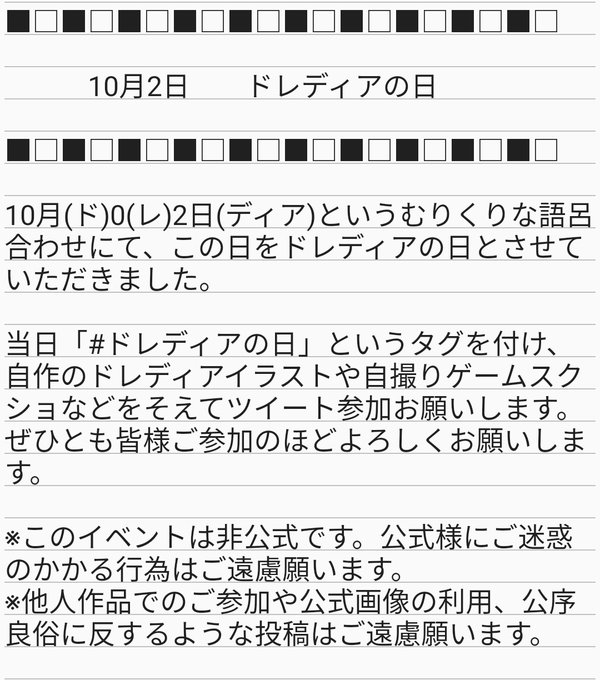 ■□■□■□■□■□■□■□■□■□■□
10月2日　　ドレディアの日
■□■□■□■□■□■□■□■□■□■□
10月(ド)0(レ)2日(ディア)というむりくりな語呂
合わせにて、この日をドレディアの日とさせて
いただきました。
当日「#ドレディアの日」というタグを付け、
自作のドレディアイラストや自撮りゲームスク
ショなどをそえてツイート参加お願いします。
ぜひとも皆様ご参加のほどよろしくお願いしま
す。
※このイベントは非公式です。公式様にご迷惑
のかかる行為はご遠慮願います。
※他人作品でのご参加や公式画像の利用、公序
良俗に反するような投稿はご遠慮願います。